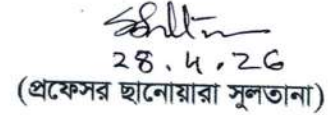 28.4.26
(প্রফেসর ছানোয়ারা সুলতানা)